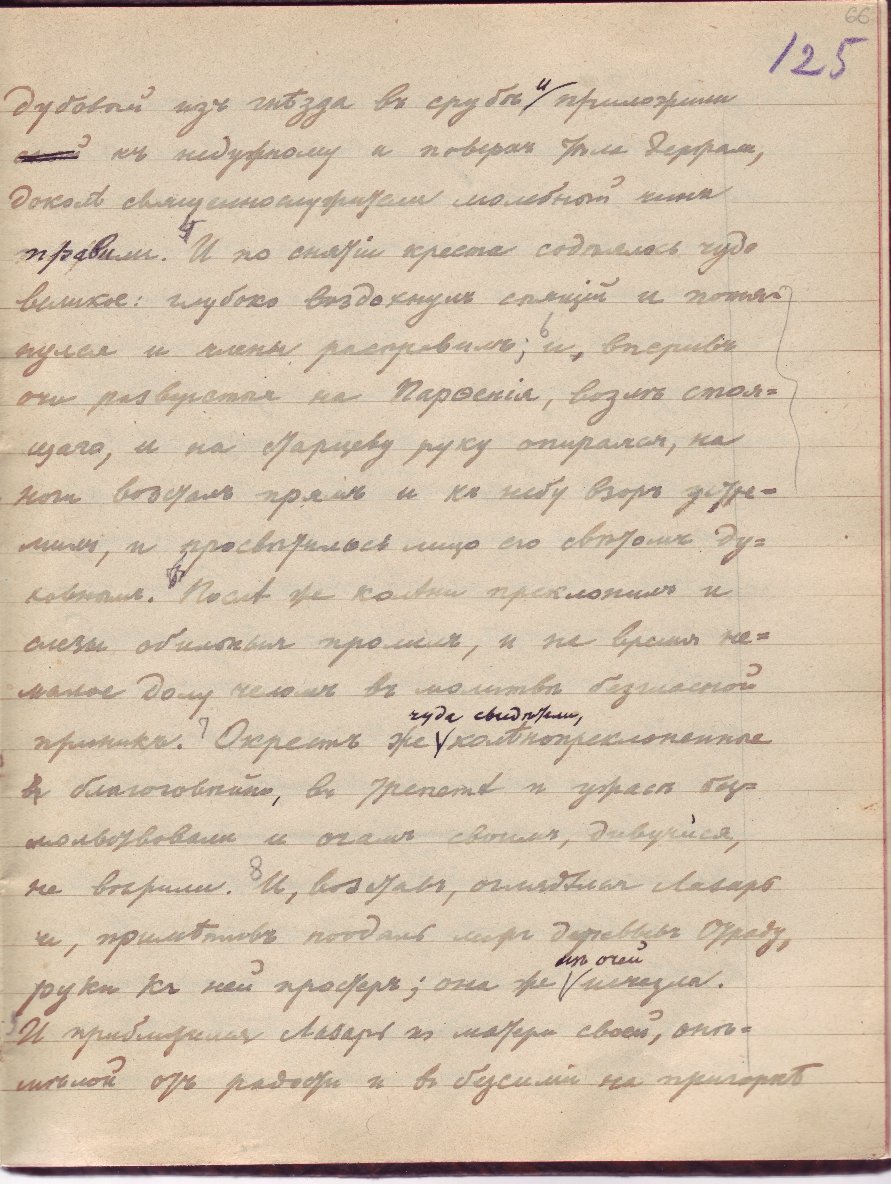 66
125
дубовый изъ гнѣзда въ срубѣ и приложили
къ недужному и поверхъ тѣла держали,
доколѣ священнослужители молебный чинъ
правили. 5 И по снятіи креста содѣялось чудо
великое: глубоко воздохнулъ спящій и потя-
нулся и члены расправилъ; 6 и, вперивъ
очи разверстыя на Парѳенія, возлѣ стоя=
щаго, и на Марцеву руку опираяся, на
ноги возсталъ прямъ и къ небу взоръ устре=
милъ, и просвѣтилось лицо его свѣтомъ ду=
ховнымъ. Послѣ же колѣни преклонилъ и
слезы обильныя пролилъ, и на время не=
малое долу челомъ въ молитвѣ безгласной
приникъ. 7 Окрестъ же чуда свидѣтели, колѣнопреклоненные
въ благоговѣйно, въ трепетѣ и ужасѣ без=
молвствовали и очамъ своимъ, дивуйся,
не вѣрили. 8 И, возставъ, оглядѣлся Лазарь
и, примѣтивъ поодаль межъ деревьевъ Отраду,
руки къ ней простеръ; она же изъ очей исчезла.
И приблизился Лазарь къ матери своей, онѣ=
мѣлой отъ радости и въ безсиліи на пригоркѣ